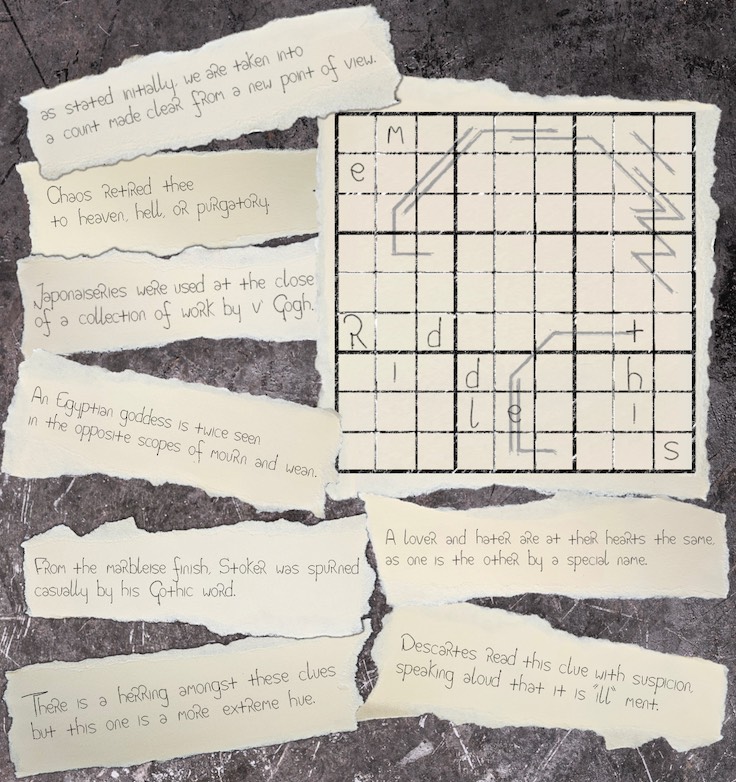 as stated initially, we are taken into
a count made clear from a new point of view.
Chaos retired thee
to heaven, hell, or purgatory.
Japonaiseries were used at the close
of a collection of work by v' Gogh.
An Egyptian goddess is twice seen
in the opposite scopes of mourn and wean.
From the marbleise finish, Stoker was spurned
casually by his Gothic word.
There is a herring amongst these clues
but this one is a more extreme hue.
m
e
R d t
l d h
l e l
s
A lover and hater are at their hearts the same,
as one is the other by a special name.
Descartes read this clue with suspicion,
speaking aloud that it is "ill" ment.